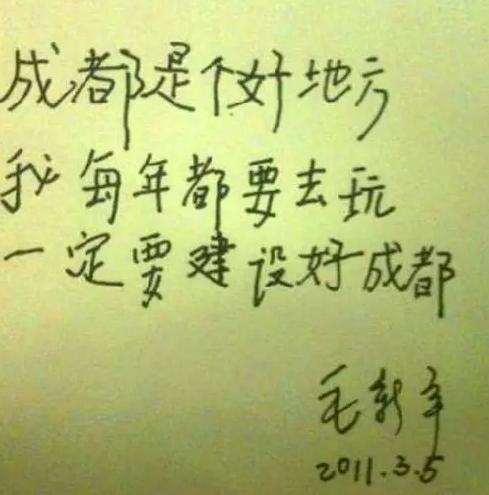 成都是个好地方
我每年都要去玩
一定要建设好成都
毛新宇
2011.3.5